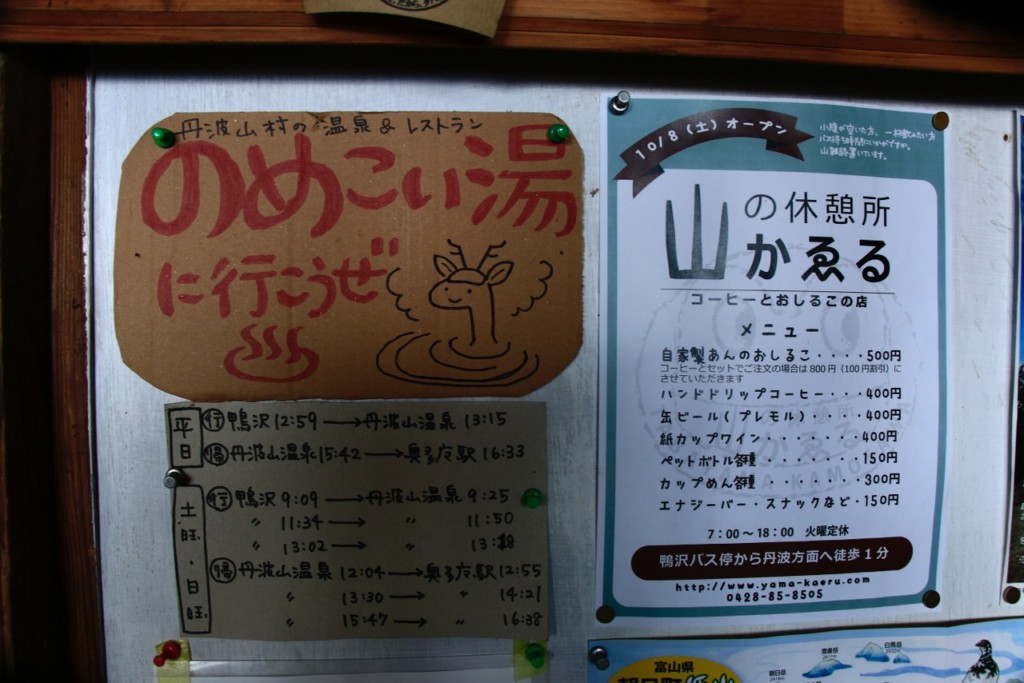 丹波山村の温泉&レストラン
のめこい湯
に行こうぜ
平日
行 鴨沢 12:59 → 丹波山温泉 13:15
帰 丹波山温泉 15:42 → 奥多摩駅 16:33
土旺・日旺
行 鴨沢 9:09 → 丹波山温泉 9:25
〃 11:34 → 〃 11:50
〃 13:02 → 〃 13:18
帰 丹波山温泉 12:04 → 奥多摩駅 12:55
〃 13:30 → 〃 14:21
〃 15:47 → 〃 16:38
10/8(土)オープン
小腹が空いた方、一杯飲みたい方
バス待ち時間にいかがですか。
山雑誌置いています。
山の休憩所
かゑる
コーヒーとおしるこの店
メニュー
自家製あんのおしるこ・・・・500円
コーヒーとセットでご注文の場合は800円(100円割引)に
させていただきます
ハンドドリップコーヒー・・・400円
缶ビール(プレモル)・・・・400円
紙カップワイン・・・・・・・400円
ペットボトル各種・・・・・・150円
カップめん各種・・・・・・・300円
エナジーバー・スナックなど・150円
7:00～18:00 火曜定休
鴨沢バス停から丹波方面へ徒歩1分
http://www.yama-kaeru.com
0428-85-8505
富山県
朝日町
朝日岳
雪倉岳
白馬岳